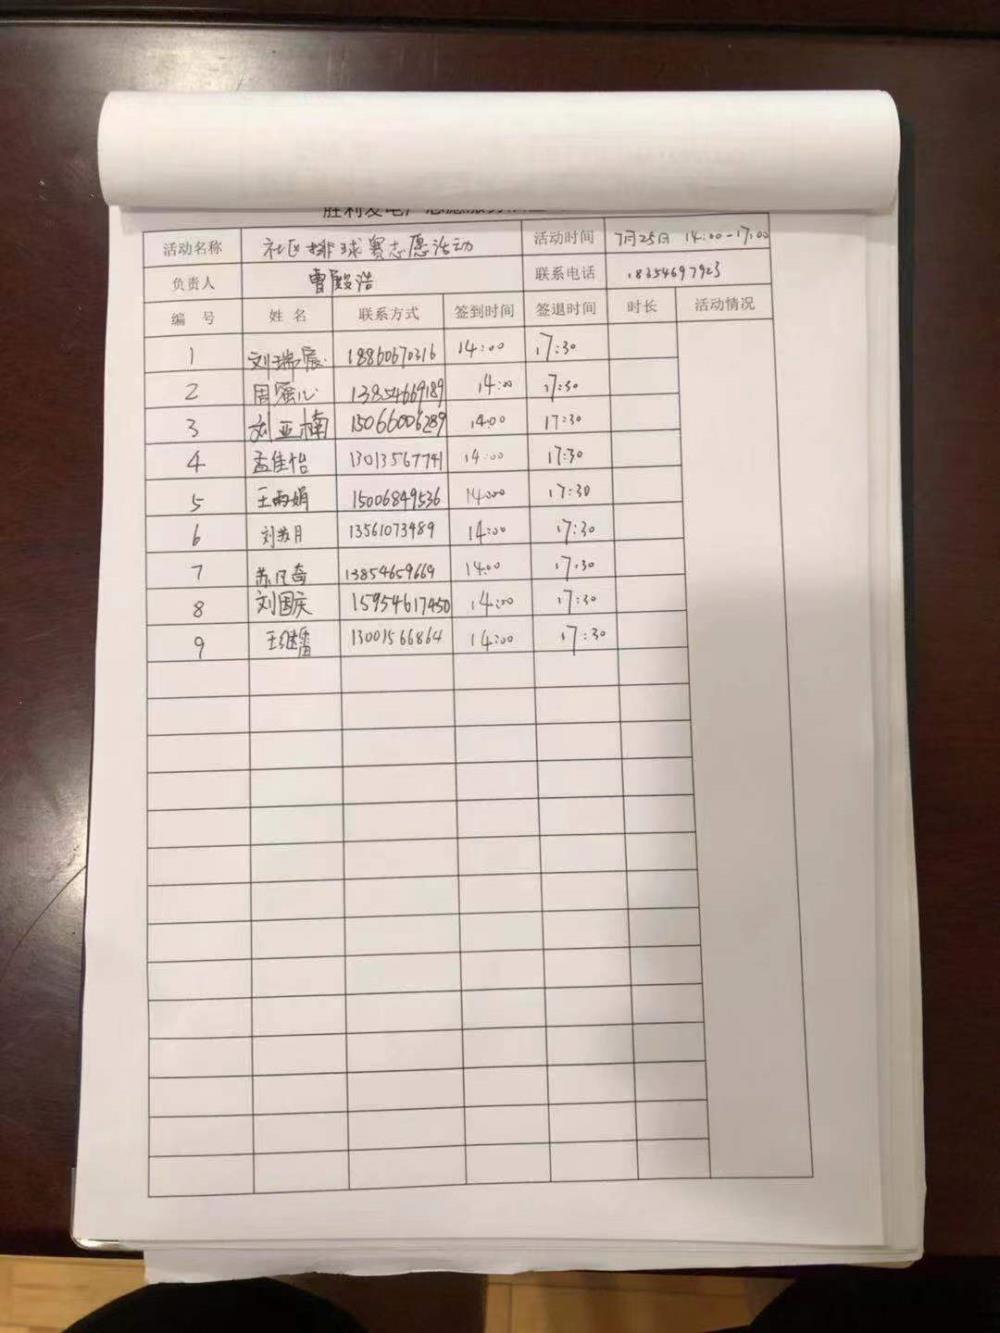 胜利发电厂志愿服务
活动名称 社区排球赛志愿活动 活动时间 7月25日 14:00-17:00
负责人 曹殿浩 联系电话 18354697923
编 号 姓 名 联系方式 签到时间 签退时间 时长 活动情况
1 刘瑞宸 18860670316 14:00 17:30
2 周 心 13854669189 14:00 17:30
3 刘亚楠 15066006289 14:00 17:30
4 孟佳怡 13013567741 14:00 17:30
5 王雨娟 15006849536 14:00 17:30
6 刘 月 13561073489 14:00 17:30
7 苏 奇 13854659669 14:00 17:30
8 刘国庆 15954617450 14:00 17:30
9 王继 13001566864 14:00 17:30